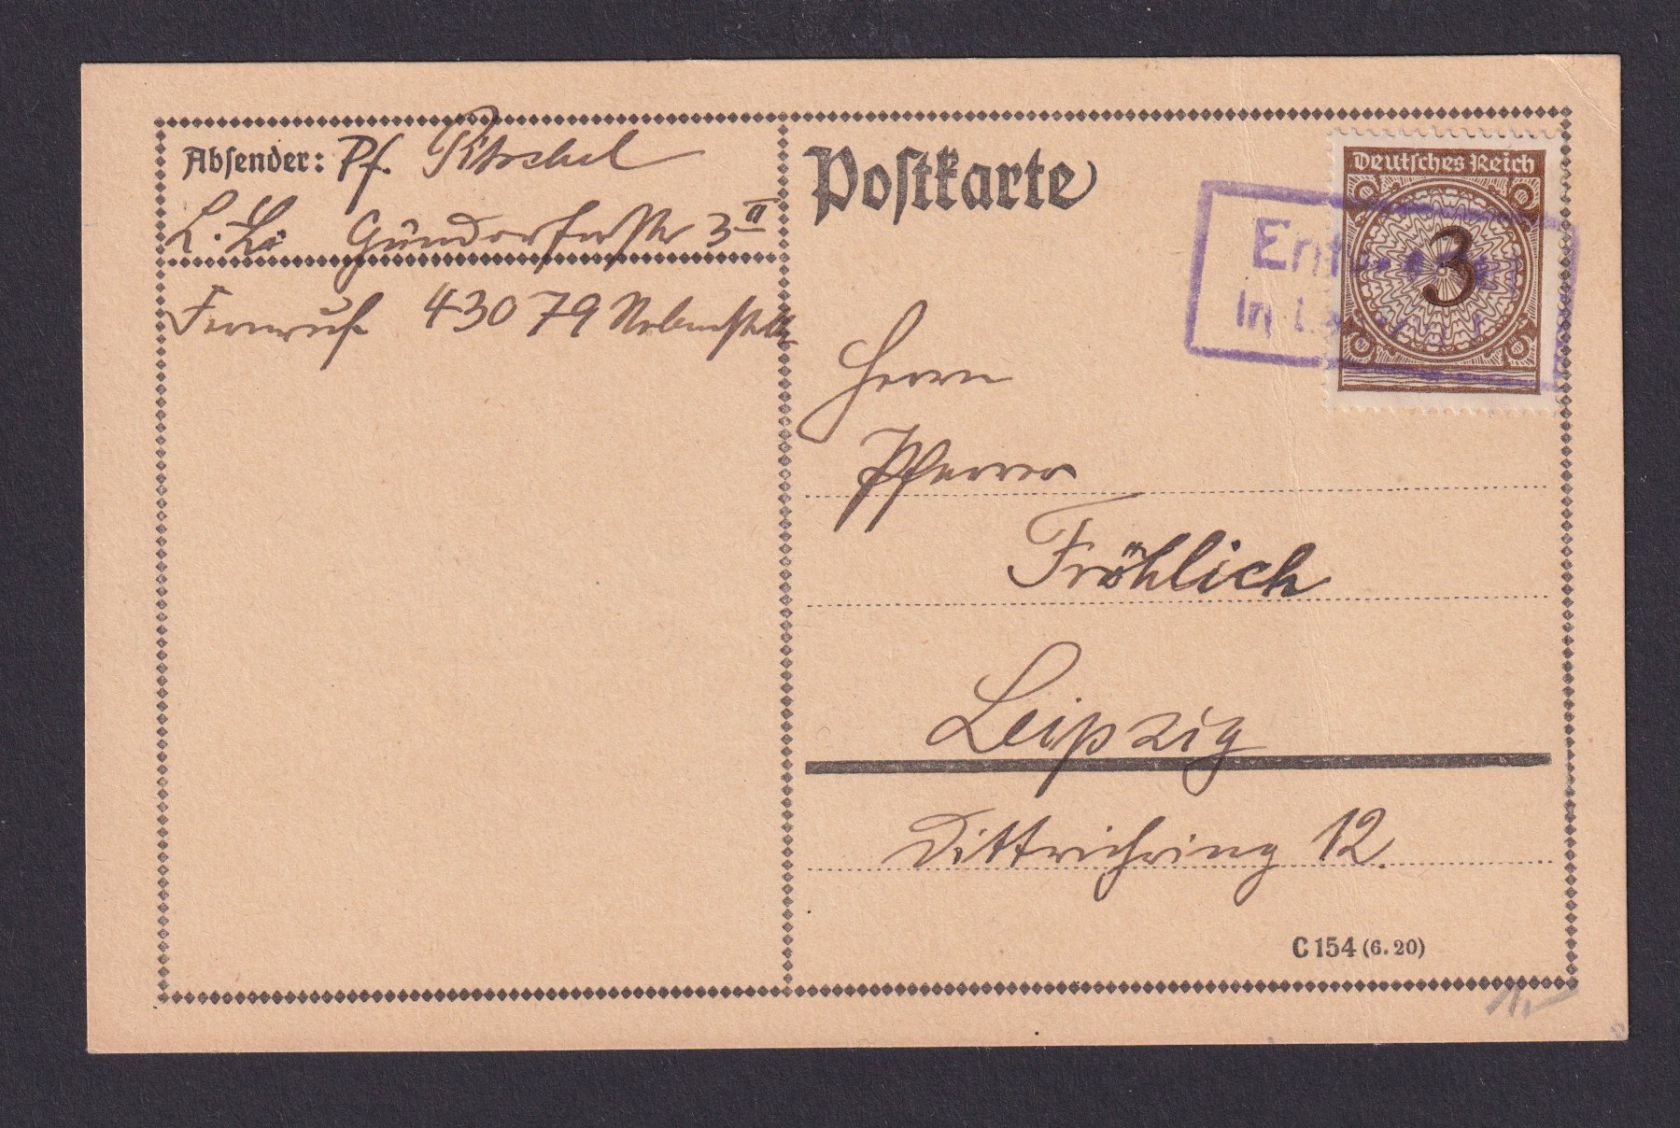 Absender: Pf.
L. Li. Gundorferstr 3 II
Fernruf 43079 Nebenstelle
Postkarte
Deutsches Reich
3
in
Herrn
Pfarrer
Fröhlich
Leipzig
Dittrichring 12.
C 154 (6. 20)